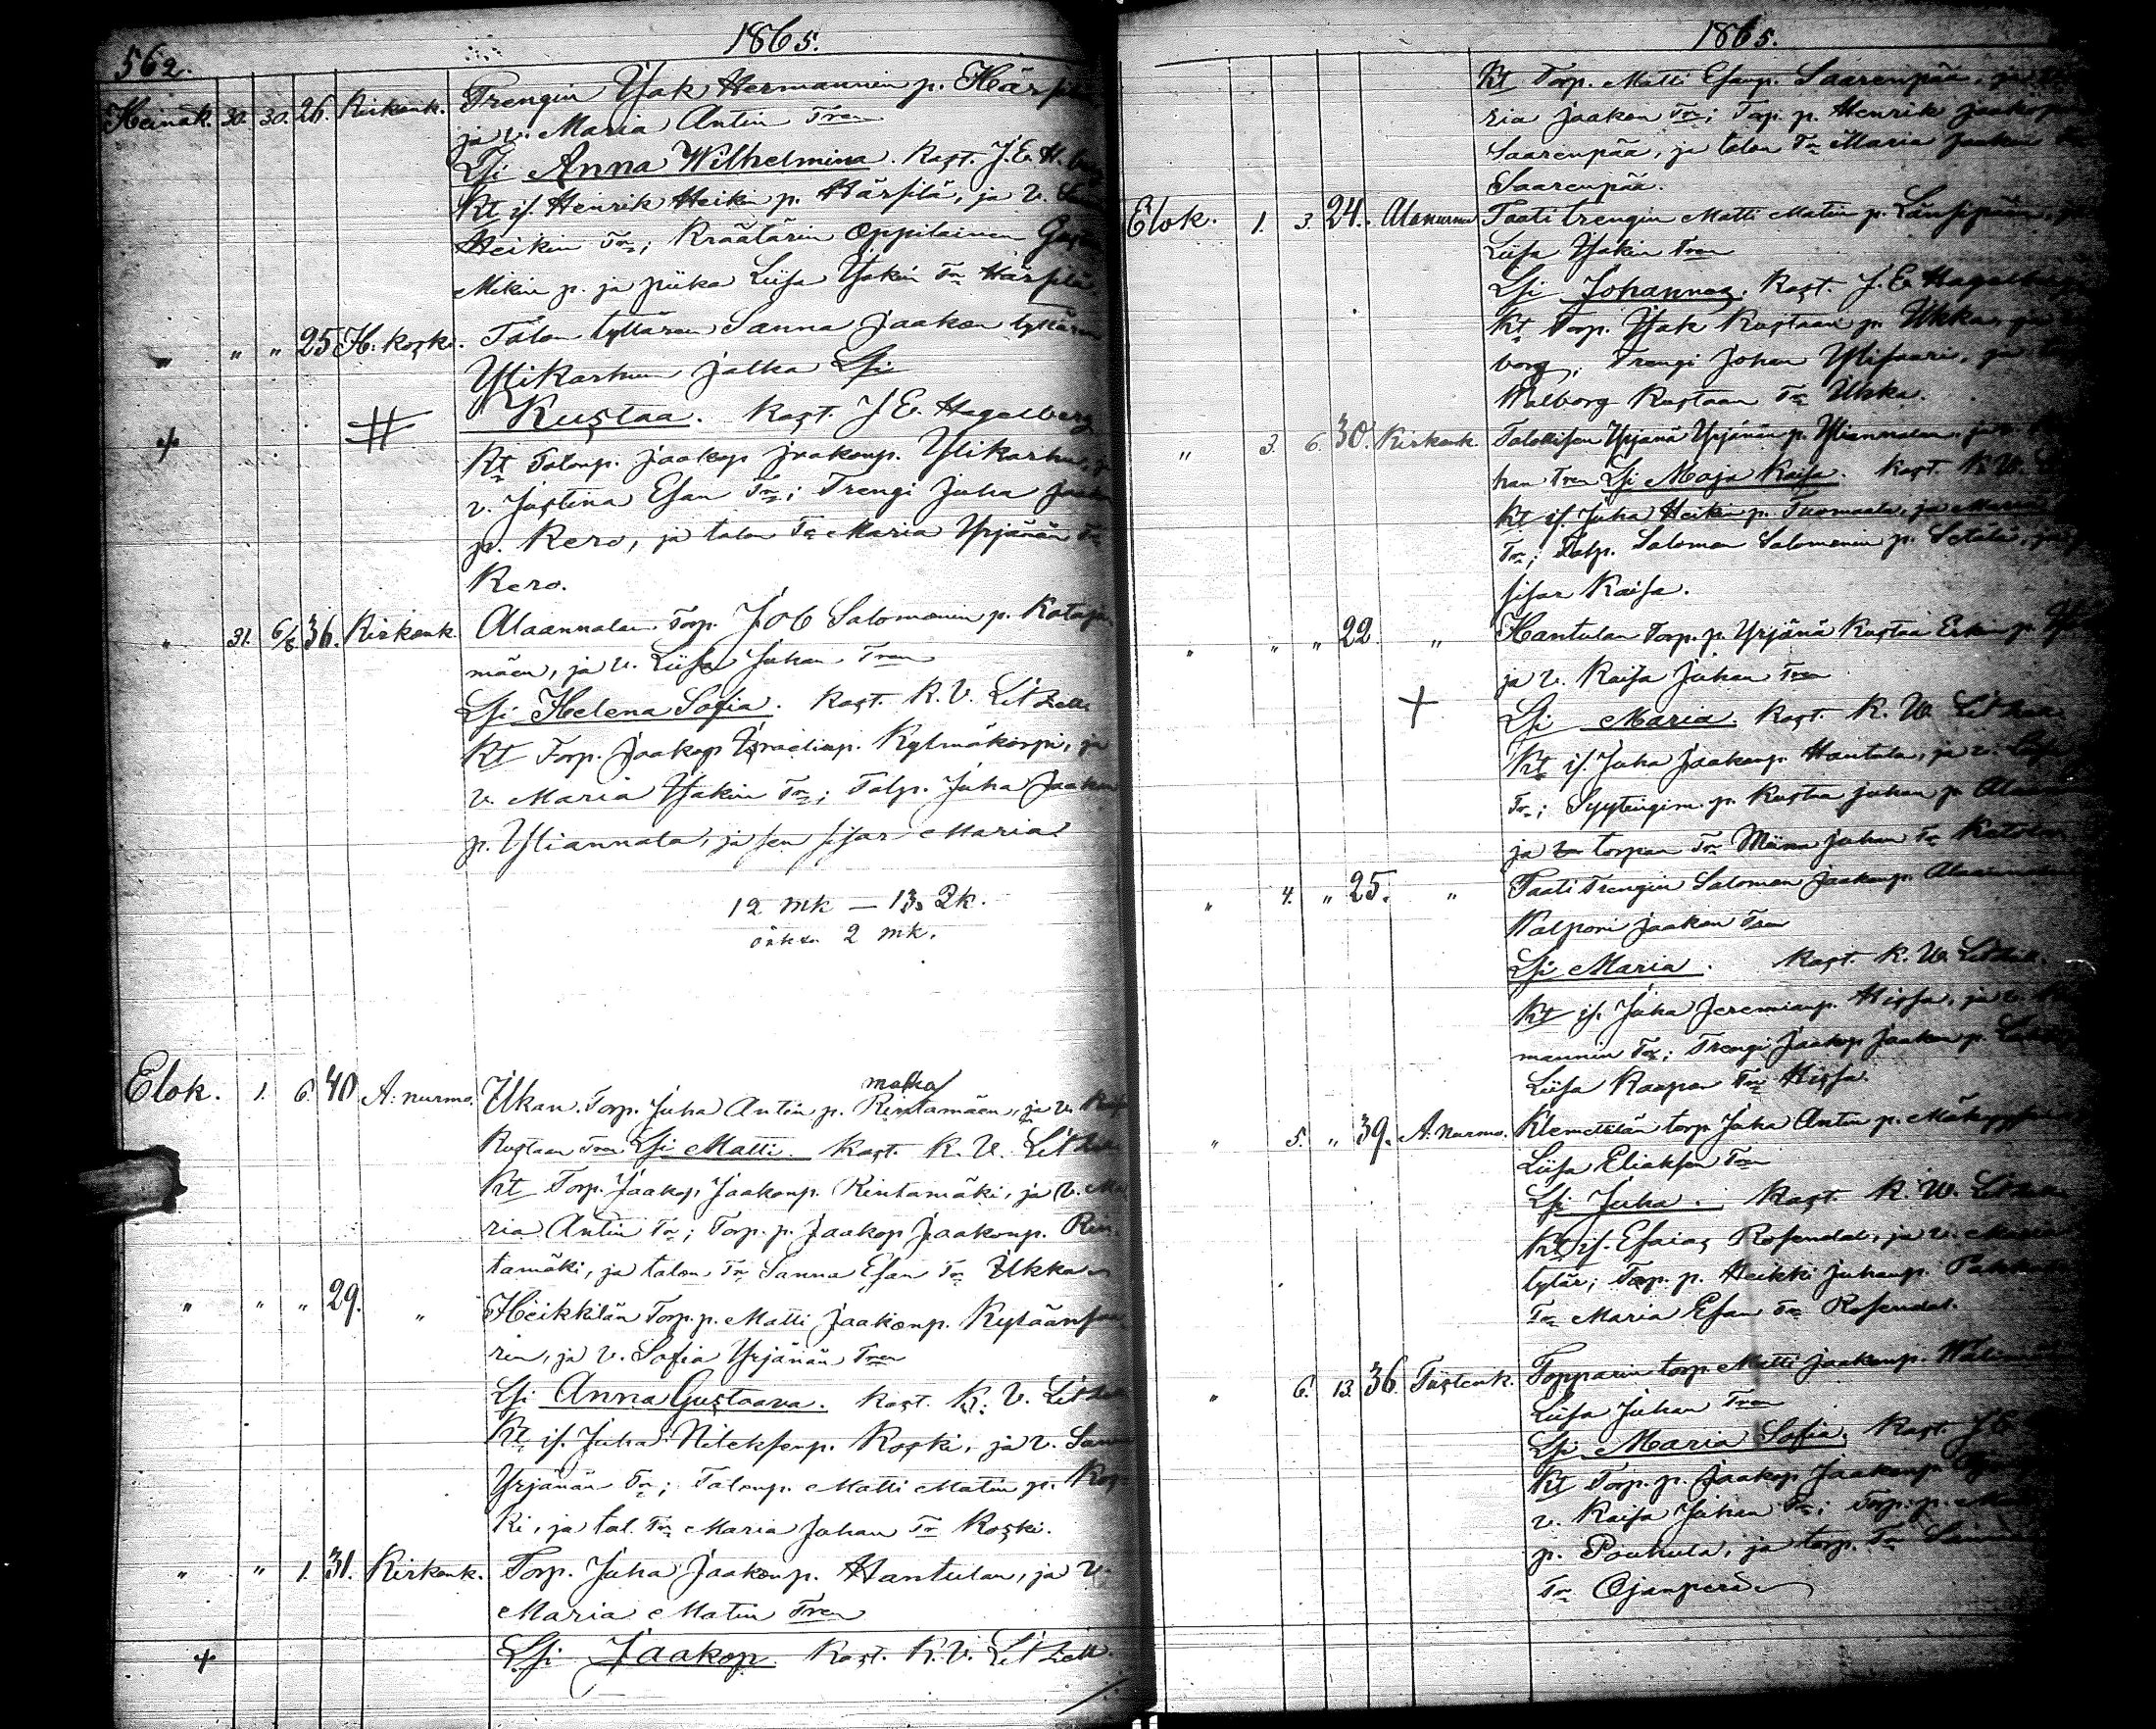 562.
1865.
Heinäk. 30. 30. 26. Kirkonk. Trengin Isak Hermannin p. Härsilä
ja v. Maria Antin Tren
Lsi Anna Wilhelmina. Kast. J. E. H.
Kt is. Henrik Heikin p. Härsilä, ja v.
Heikin Tr; Kräätärin Oppilainen
Mikin p. ja piika Liisa Isakin Tr Härsilä.
" " " 25 H: koski. Talon tyttären Sanna Jaakon tyttären
Ylikarhun jalka Lsi
+ # Kustaa. Kast. J E. Hagelberg
Kt Talonp. Jaakop Jaakonp. Ylikarhu, j
v. Justina Esan Tr; Trengi Juha Jaakon
p. Kero, ja talon Tr Maria Yrjänän Tr
Kero.
" 31. 6/8 36. Kirkonk. Alaannalan Torp. Job Salomonin p. Kataja
mäen, ja v. Liisa Juhan Tren
Lsi Helena Sofia. Kast. K. V. Litzell
Kt Torp. Jaakop Israelinp. Kylmäkorpi, ja
v. Maria Isakin Tr; Talp. Juha Jaakon
p. Yliannala, ja sen sisar Maria
12 mk — 13. Qk.
2 mk.
Elok. 1. 6. 40 A: nurmo. Ukan Torp. Juha Antin p. Rintamäen, ja v.
matka
Kustaan Tren Lsi Matti. Kast. K. V. Litzell
Kt Torp. Jaakop Jaakonp. Rintamäki, ja v. Ma
ria Antin Tr; Torp. p. Jaakop Jaakonp. Rin
tamäki, ja talon Tr Sanna Esan Tr Ukka
" " " 29. " Heikkilän Torp. p. Matti Jaakonp. Kyläänsaa
ren, ja v. Sofia Yrjänän Tren
Lsi Anna Gustaava. Kast. K. V. Litzell
Kt is. Juha Nileksenp. Koski, ja v. Sanna
Yrjänän Tr; Talonp. Matti Matin p. Kos
ki, ja tal. Tr Maria Juhan Tr Koski.
" " 1. 31. Kirkonk. Torp. Juha Jaakonp. Hantulan, ja v.
Maria Matin Tren
+ Lsi Jaakop. Kast. K. V. Litzell.
1865.
Kt Torp. Matti Esanp. Saarenpää, ja
ria Jaakon Tr; Torp. p. Henrik Jaakop
Saarenpää, ja talon Tr Maria Jaakon Tr
Saarenpää.
Elok. 1. 3. 24. Alanurmo Taati trengin Matti Matin p. Länsipään,
Liisa Isakin Tren
Lsi Johannes. Kast. J. E. Hagelberg
Kt Torp. Isak Kustaan p. Ukka,
borg; Trengi Johan Ylisaari, ja
Walborg Kustaan Tr Ukka.
" 3. 6. 30. Kirkonk. Talollisen Yrjänä Yrjänän p. Yliannalan, ja v.
han Tren Lsi Maja Kaisa. Kast. K. W.
Kt is. Juha Heikin p. Tuomaala, ja Maria
Tr; Talp. Salomon Salomonin p. Setälä, ja
sisar Kaisa.
" " " 22. " Hantulan Torp. p. Yrjänä Kustaa Erkin p.
ja v. Kaisa Juhan Tren
+ Lsi Maria. Kast. K. W. Litzell.
Kt is. Juha Jaakonp. Hantula, ja v. Liisa
Tr; Syytingim. p. Kustaa Juhan p.
ja torpan Tr Miina Juhan Tr
" 4. " 25. " Taati Trengin Salomon Jaakonp.
Walpori Jaakon Tren
Lsi Maria. Kast. K. W. Litzell.
Kt is. Juha Jeremianp. Hissa, ja v.
mannin Tr; Trengi Jaakop Jaakon p.
Liisa Kaapon Tr Hissa.
" 5. " 39. A: Nurmo. Klemettilän torp. Juha Antin p.
Liisa Eliaksen Tren
Lsi Juha. Kast. K. W. Litzell.
Kt is. Esaias Rosendal, ja v. Maria
tytär; Torp. p. Heikki Juhanp.
Tr Maria Esan Tr Rosendal.
" 6. 13. 36. Tiistenk. Topparin torp. Matti Jaakonp.
Liisa Juhan Tren
Lsi Maria Sofia. Kast. J E
Kt Torp. p. Jaakop Jaakonp.
v. Kaisa Juhan Tr; Torp. p.
p. Pouhula, ja torp. Tr
Tr Ojanperä